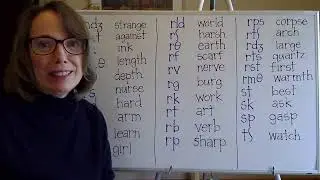 ndʒ strange
against
ink
length
depth
nurse
hard
arm
learn
girl
rld world
rʃ harsh
rθ earth
rf scarf
rv nerve
rg burg
rk work
rt art
rb verb
rp sharp
rps corpse
rtʃ arch
rdʒ large
rts quartz
rst first
rmθ warmth
st best
sk ask
sp gasp
tʃ watch